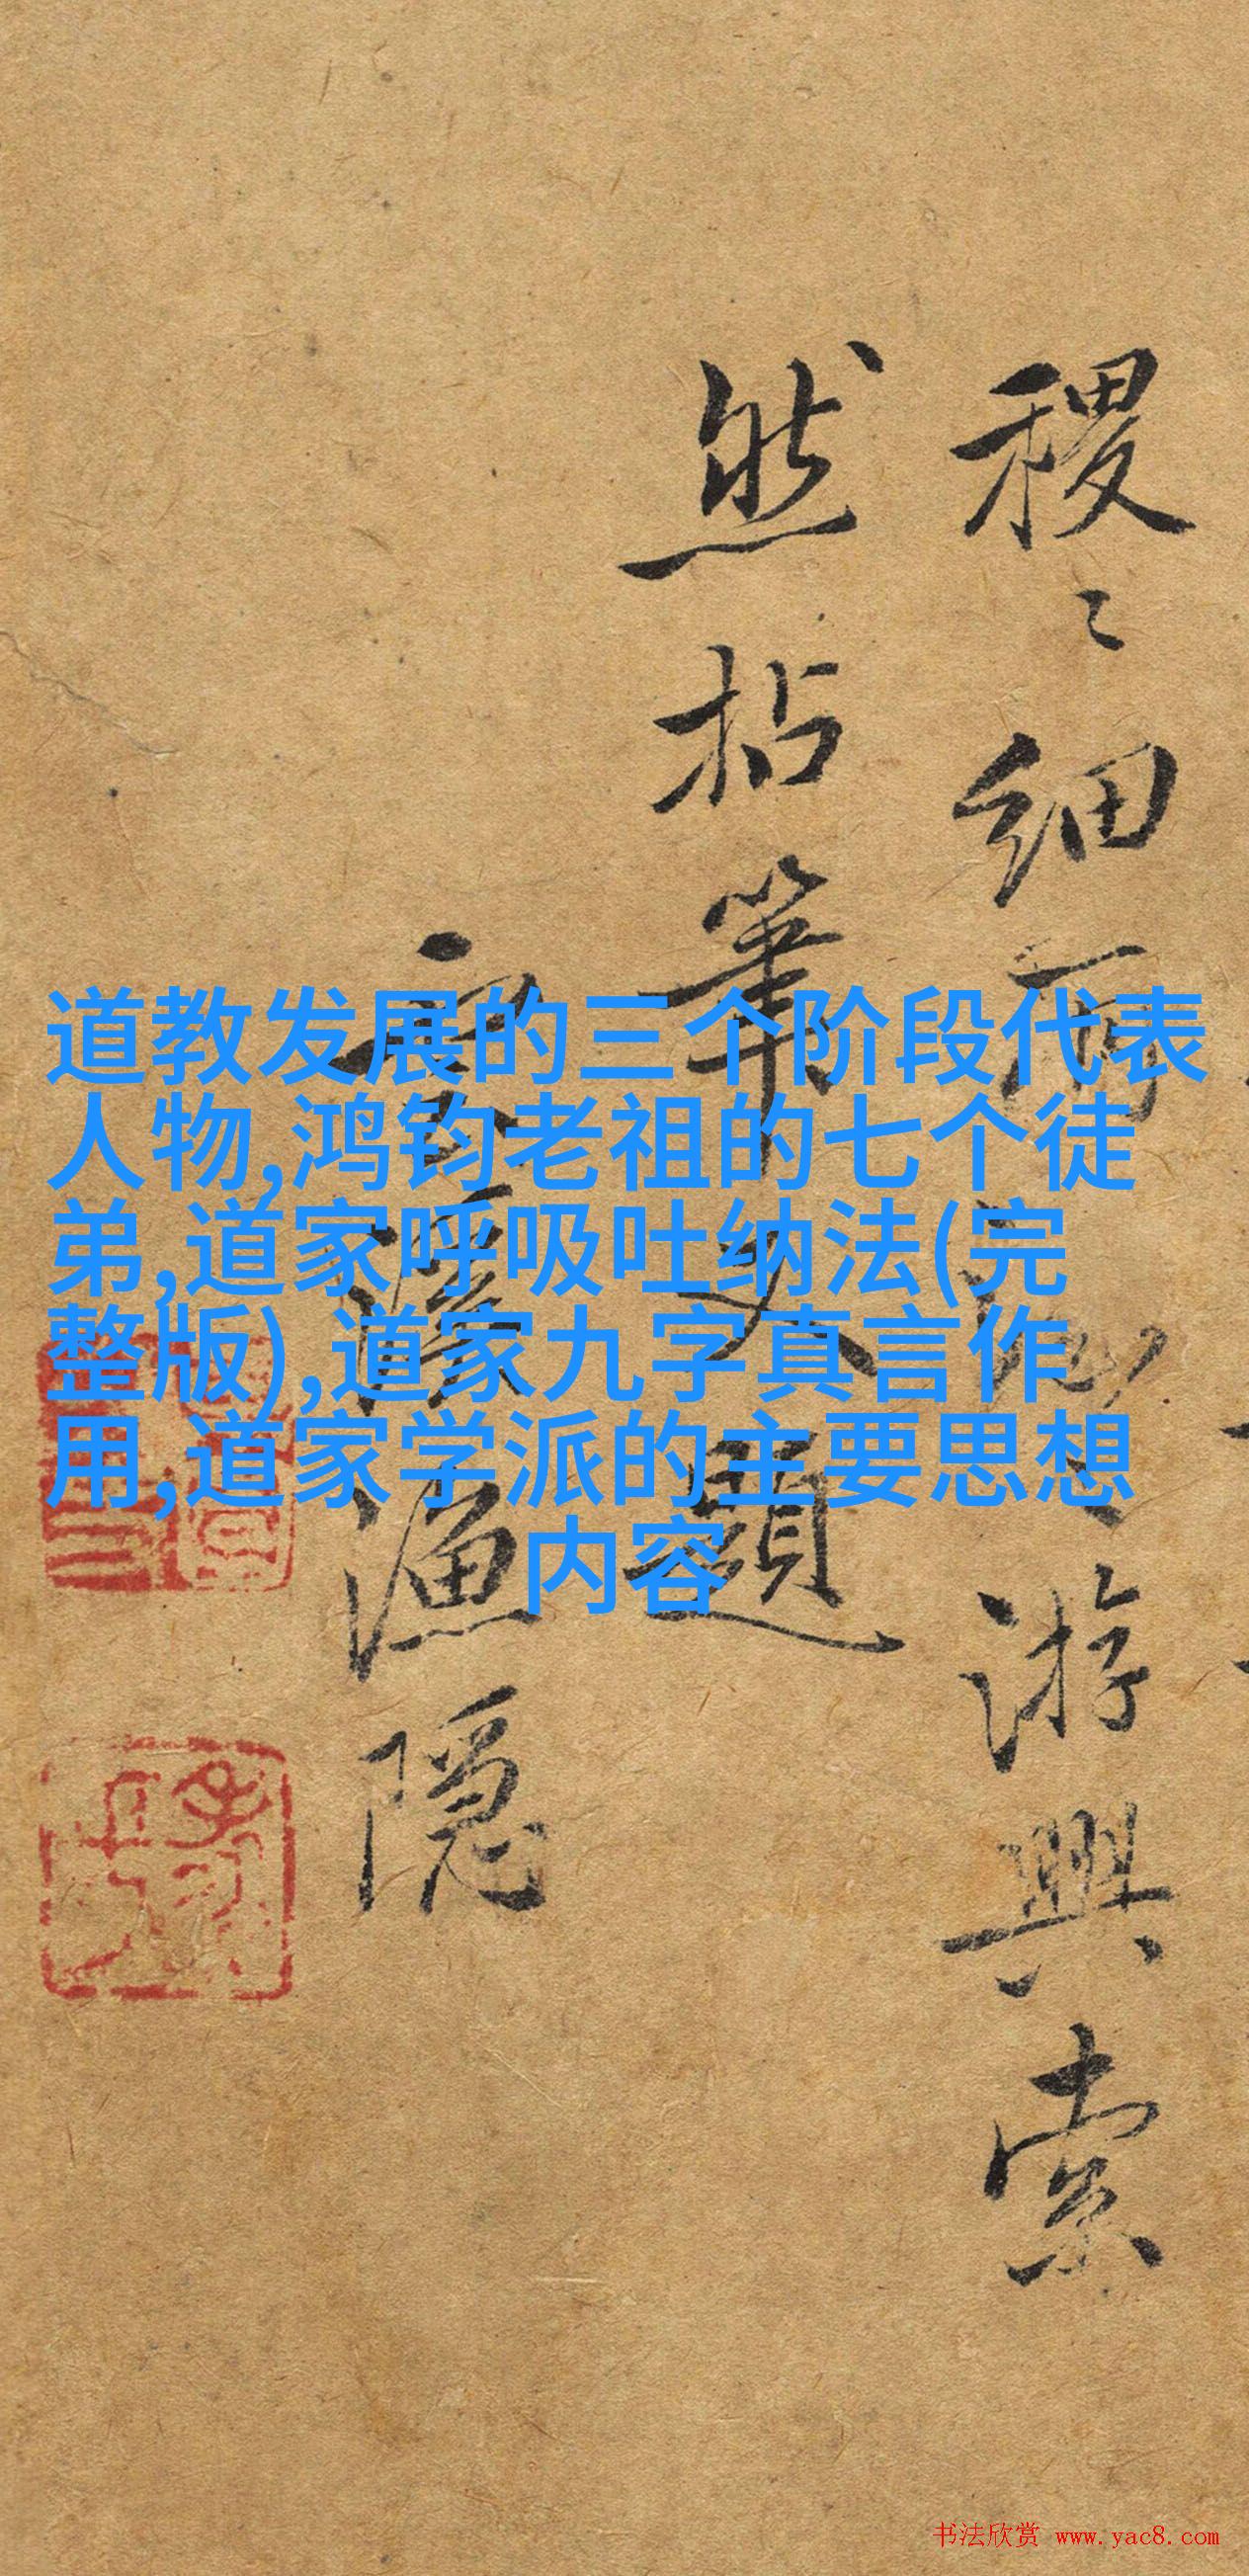 稷〻细雨
游興索
然拈筆又題
雲溪漁隱
道教发展的三个阶段代表
人物,鸿钧老祖的七个徒
弟,道家呼吸吐纳法(完
整版),道家九字真言作
用,道家学派的主要思想
内容
书法欣赏 www.yac8.com